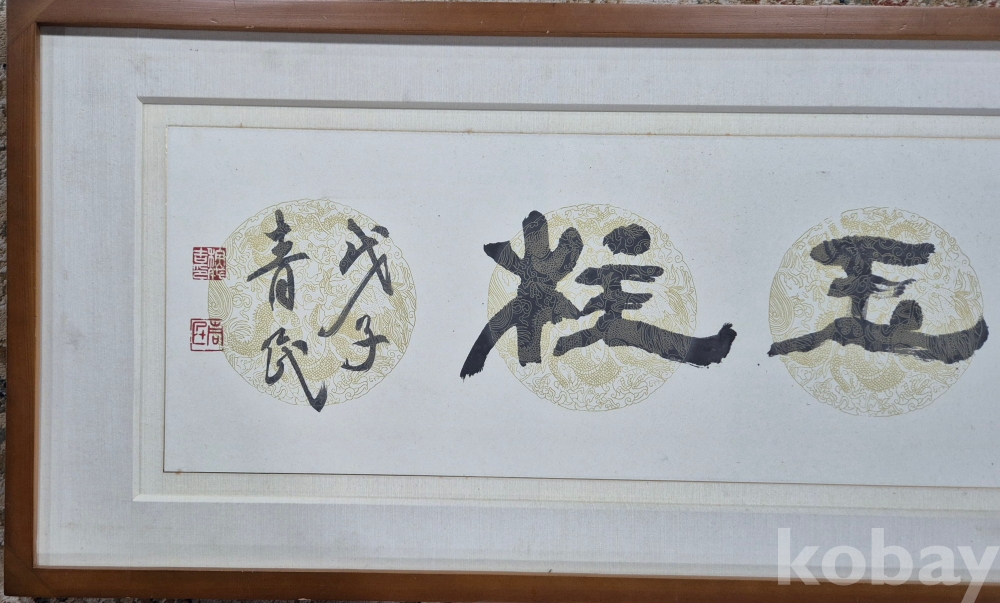 五柱
戊子
青民
kobay